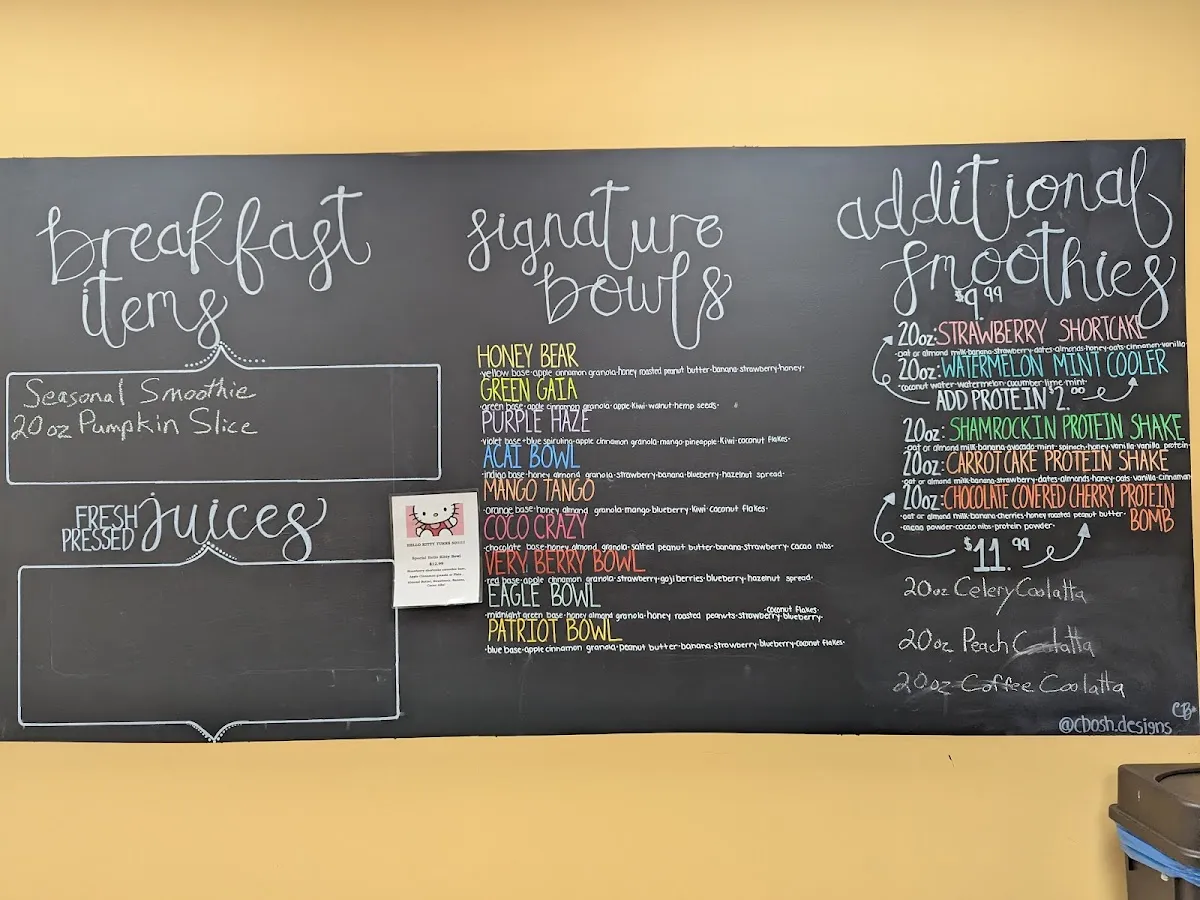 breakfast
items
Seasonal Smoothie
20oz Pumpkin Slice
FRESH
PRESSED
juices
HELLO KITTY YUMMY BOWL
Special Hello Kitty Bowl
$12.99
signature
bowls
HONEY BEAR
yellow base·apple cinnamon granola·honey roasted peanut butter·banana·strawberry·honey·
GREEN GAIA
green base·apple cinnamon granola·apple·kiwi·walnut·hemp seeds·
PURPLE HAZE
violet base·blue spirulina·apple cinnamon granola·mango·pineapple·kiwi·coconut flakes·
ACAI BOWL
indigo base·honey almond granola·strawberry·banana·blueberry·hazelnut spread·
MANGO TANGO
orange base·honey almond granola·mango·blueberry·kiwi·coconut flakes·
COCO CRAZY
chocolate base·honey almond granola·salted peanut butter·banana·strawberry·cacao nibs·
VERY BERRY BOWL
red base·apple cinnamon granola·strawberry·goji berries·blueberry·hazelnut spread·
EAGLE BOWL
·coconut flakes·
·midnight green base·honey almond granola·honey roasted peanuts·strawberry·blueberry·
PATRIOT BOWL
·blue base·apple cinnamon granola·peanut butter·banana·strawberry·blueberry·coconut flakes·
additional
smoothies
$9.99
20oz: STRAWBERRY SHORTCAKE
·oat or almond milk·banana·strawberry·dates·almonds·honey·oats·cinnamon·vanilla·
20oz: WATERMELON MINT COOLER
·coconut water·watermelon·cucumber·lime·mint·
ADD PROTEIN $2.00
20oz: SHAMROCKIN PROTEIN SHAKE
·oat or almond milk·banana·avocado·mint·spinach·honey·vanilla·vanilla protein·
20oz: CARROT CAKE PROTEIN SHAKE
·oat or almond milk·banana·strawberry·dates·almonds·honey·oats·vanilla·cinnamon
20oz: CHOCOLATE COVERED CHERRY PROTEIN
BOMB
·oat or almond milk·banana·cherries·honey roasted peanut butter·
·cacao powder·cacao nibs·protein powder·
$11.99
20oz Celery Coolatta
20oz Peach Coolatta
20oz Coffee Coolatta
CB
@cbosh.designs